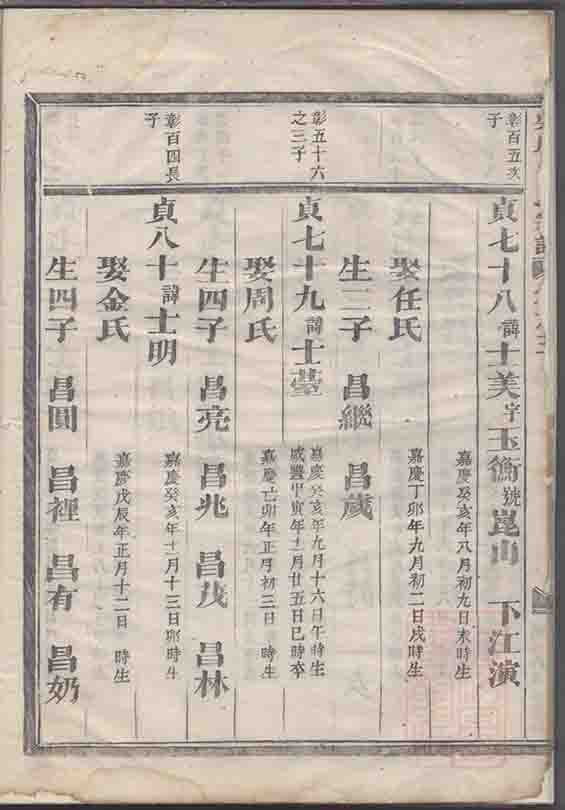 彰百五次子
貞七十八諱士美字玉衡號崑山 下江演
嘉慶癸亥年八月初九日未時生
娶任氏
嘉慶丁卯年九月初二日戌時生
生二子 昌繼 昌歲
彰五十六之三子
貞七十九諱士
嘉慶癸亥年九月十六日午時生
咸豐甲寅年 月廿五日巳時卒
娶周氏
嘉慶己卯年正月初三日 時生
生四子 昌亮 昌兆 昌茂 昌林
彰百四長子
貞八十諱士明
嘉慶癸亥年十一月十三日卯時生
娶金氏
嘉慶戊辰年正月十二日 時生
生四子 昌圓 昌裡 昌有 昌奶